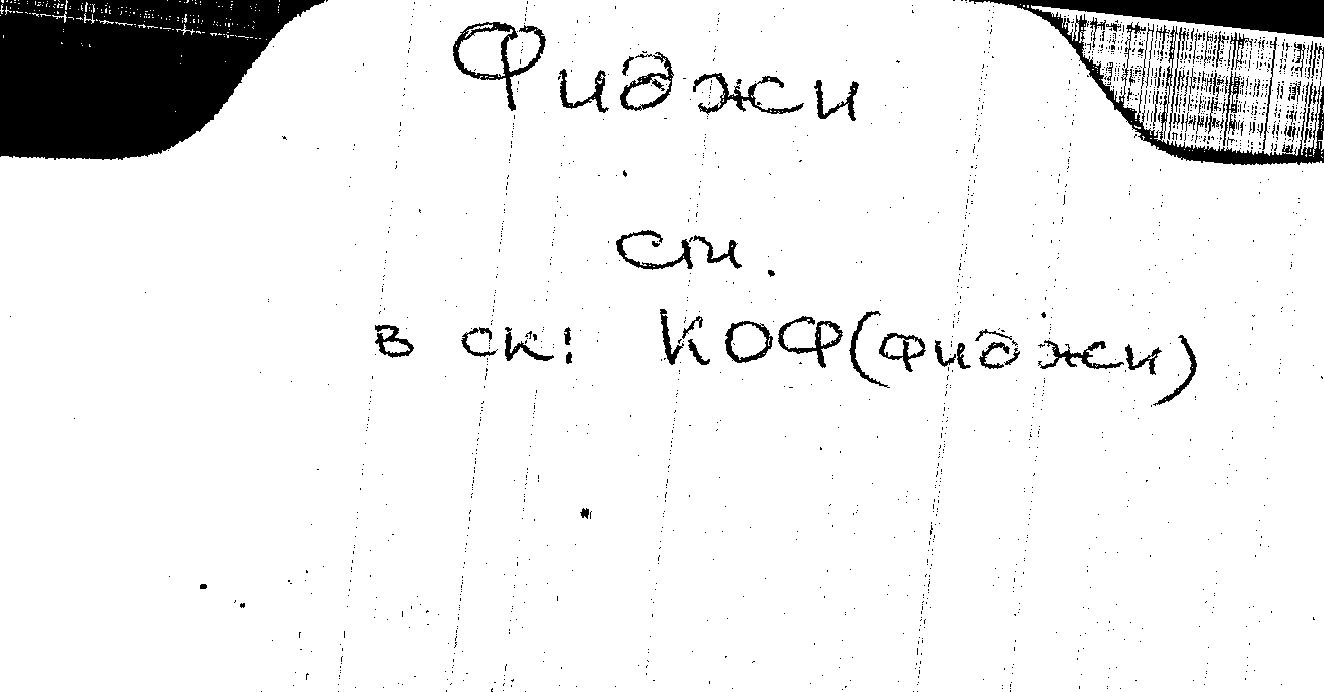 Фиджи
см.
в ск: КОФ(фиджи)